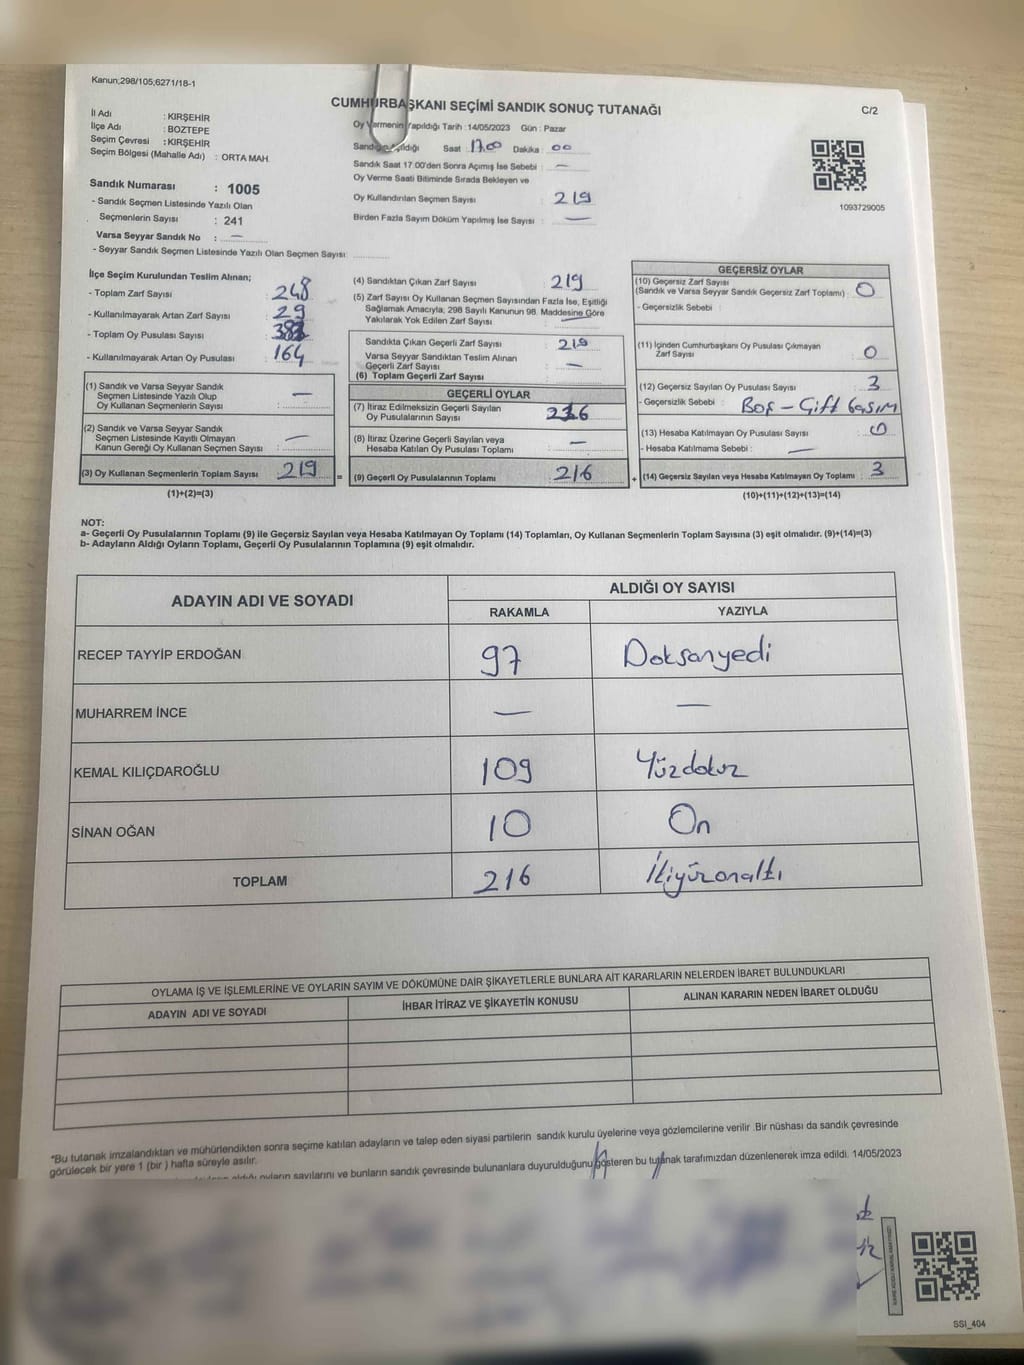 Kanun;298/105;6271/18-1
CUMHURBAŞKANI SEÇİMİ SANDIK SONUÇ TUTANAĞI
C/2
İl Adı : KIRŞEHİR
İlçe Adı : BOZTEPE
Seçim Çevresi : KIRŞEHİR
Seçim Bölgesi (Mahalle Adı) : ORTA MAH.
Sandık Numarası : 1005
- Sandık Seçmen Listesinde Yazılı Olan
Seçmenlerin Sayısı : 241
Varsa Seyyar Sandık No : —
- Seyyar Sandık Seçmen Listesinde Yazılı Olan Seçmen Sayısı:
Oy Vermenin Yapıldığı Tarih :14/05/2023 Gün : Pazar
Sandığın Açıldığı Saat : 17.00 Dakika : 00
Sandık Saat 17:00'den Sonra Açımış İse Sebebi : —
Oy Verme Saati Bitiminde Sırada Bekleyen ve
Oy Kullandırılan Seçmen Sayısı 219
Birden Fazla Sayım Döküm Yapılmış İse Sayısı : —
1093729005
İlçe Seçim Kurulundan Teslim Alınan;
- Toplam Zarf Sayısı : 248
- Kullanılmayarak Artan Zarf Sayısı : 29
- Toplam Oy Pusulası Sayısı :
- Kullanılmayarak Artan Oy Pusulası : 164
(1) Sandık ve Varsa Seyyar Sandık
Seçmen Listesinde Yazılı Olup
Oy Kullanan Seçmenlerin Sayısı : —
(2) Sandık ve Varsa Seyyar Sandık
Seçmen Listesinde Kayıtlı Olmayan
Kanun Gereği Oy Kullanan Seçmen Sayısı : —
(3) Oy Kullanan Seçmenlerin Toplam Sayısı : 219
(1)+(2)=(3)
(4) Sandıktan Çıkan Zarf Sayısı : 219
(5) Zarf Sayısı Oy Kullanan Seçmen Sayısından Fazla İse, Eşitliği
Sağlamak Amacıyla, 298 Sayılı Kanunun 98. Maddesine Göre
Yakılarak Yok Edilen Zarf Sayısı
Sandıkta Çıkan Geçerli Zarf Sayısı : 219
Varsa Seyyar Sandıktan Teslim Alınan
Geçerli Zarf Sayısı : —
(6) Toplam Geçerli Zarf Sayısı
GEÇERLİ OYLAR
(7) İtiraz Edilmeksizin Geçerli Sayılan
Oy Pusulalarının Sayısı : 216
(8) İtiraz Üzerine Geçerli Sayılan veya
Hesaba Katılan Oy Pusulası Toplamı : —
= (9) Geçerli Oy Pusulalarının Toplamı : 216
GEÇERSİZ OYLAR
(10) Geçersiz Zarf Sayısı
(Sandık ve Varsa Seyyar Sandık Geçersiz Zarf Toplamı) : 0
- Geçersizlik Sebebi :
(11) İçinden Cumhurbaşkanı Oy Pusulası Çıkmayan
Zarf Sayısı : 0
(12) Geçersiz Sayılan Oy Pusulası Sayısı : 3
- Geçersizlik Sebebi : Boş - Çift basım
(13) Hesaba Katılmayan Oy Pusulası Sayısı : 0
- Hesaba Katılmama Sebebi : —
+ (14) Geçersiz Sayılan veya Hesaba Katılmayan Oy Toplamı : 3
(10)+(11)+(12)+(13)=(14)
NOT:
a- Geçerli Oy Pusulalarının Toplamı (9) ile Geçersiz Sayılan veya Hesaba Katılmayan Oy Toplamı (14) Toplamları, Oy Kullanan Seçmenlerin Toplam Sayısına (3) eşit olmalıdır. (9)+(14)=(3)
b- Adayların Aldığı Oyların Toplamı, Geçerli Oy Pusulalarının Toplamına (9) eşit olmalıdır.
ADAYIN ADI VE SOYADI
ALDIĞI OY SAYISI
RAKAMLA YAZIYLA
RECEP TAYYİP ERDOĞAN 97 Doksanyedi
MUHARREM İNCE — —
KEMAL KILIÇDAROĞLU 109 Yüzdokuz
SİNAN OĞAN 10 On
TOPLAM 216 İkiyüzonaltı
OYLAMA İŞ VE İŞLEMLERİNE VE OYLARIN SAYIM VE DÖKÜMÜNE DAİR ŞİKAYETLERLE BUNLARA AİT KARARLARIN NELERDEN İBARET BULUNDUKLARI
ADAYIN ADI VE SOYADI İHBAR İTİRAZ VE ŞİKAYETİN KONUSU ALINAN KARARIN NEDEN İBARET OLDUĞU
*Bu tutanak imzalandıktan ve mühürlendikten sonra seçime katılan adayların ve talep eden siyasi partilerin sandık kurulu üyelerine veya gözlemcilerine verilir .Bir nüshası da sandık çevresinde
görülecek bir yere 1 (bir ) hafta süreyle asılır.
aldığı oyların sayılarını ve bunların sandık çevresinde bulunanlara duyurulduğunu gösteren bu tutanak tarafımızdan düzenlenerek imza edildi. 14/05/2023
SSI_404